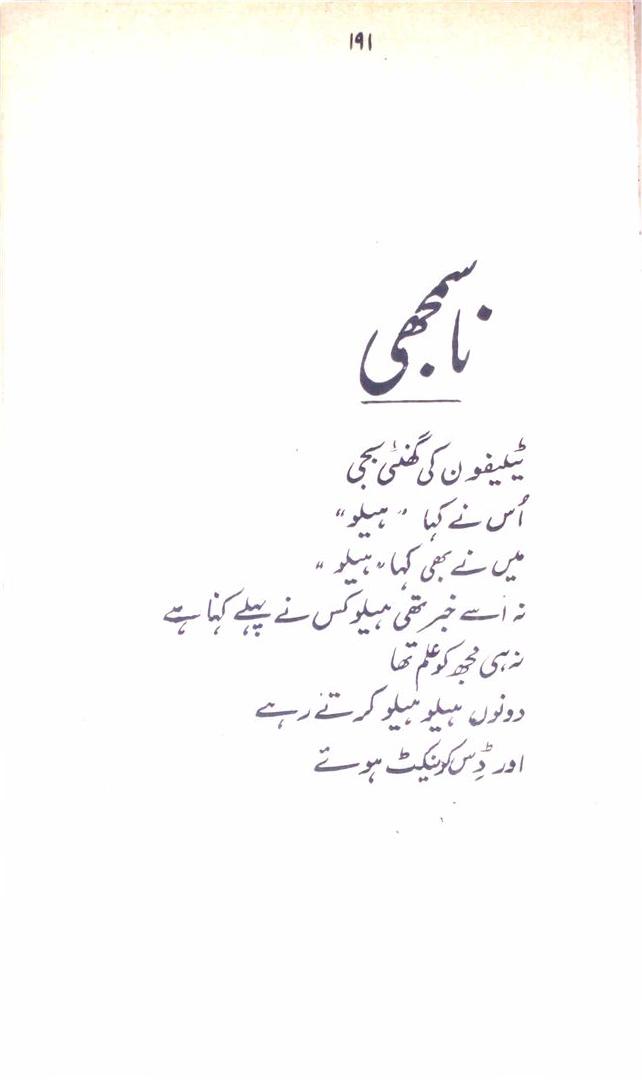 ۱۹۱
ناسمجھی
ٹیلیفون کی گھنٹی بجی
اُس نے کہا "ہیلو"
میں نے بھی کہا "ہیلو"
نہ اُسے خبر تھی ہیلو کس نے پہلے کہنا ہے
نہ ہی مجھ کو علم تھا
دونوں ہیلو ہیلو کرتے رہے
اور ڈِس کونیکٹ ہوئے